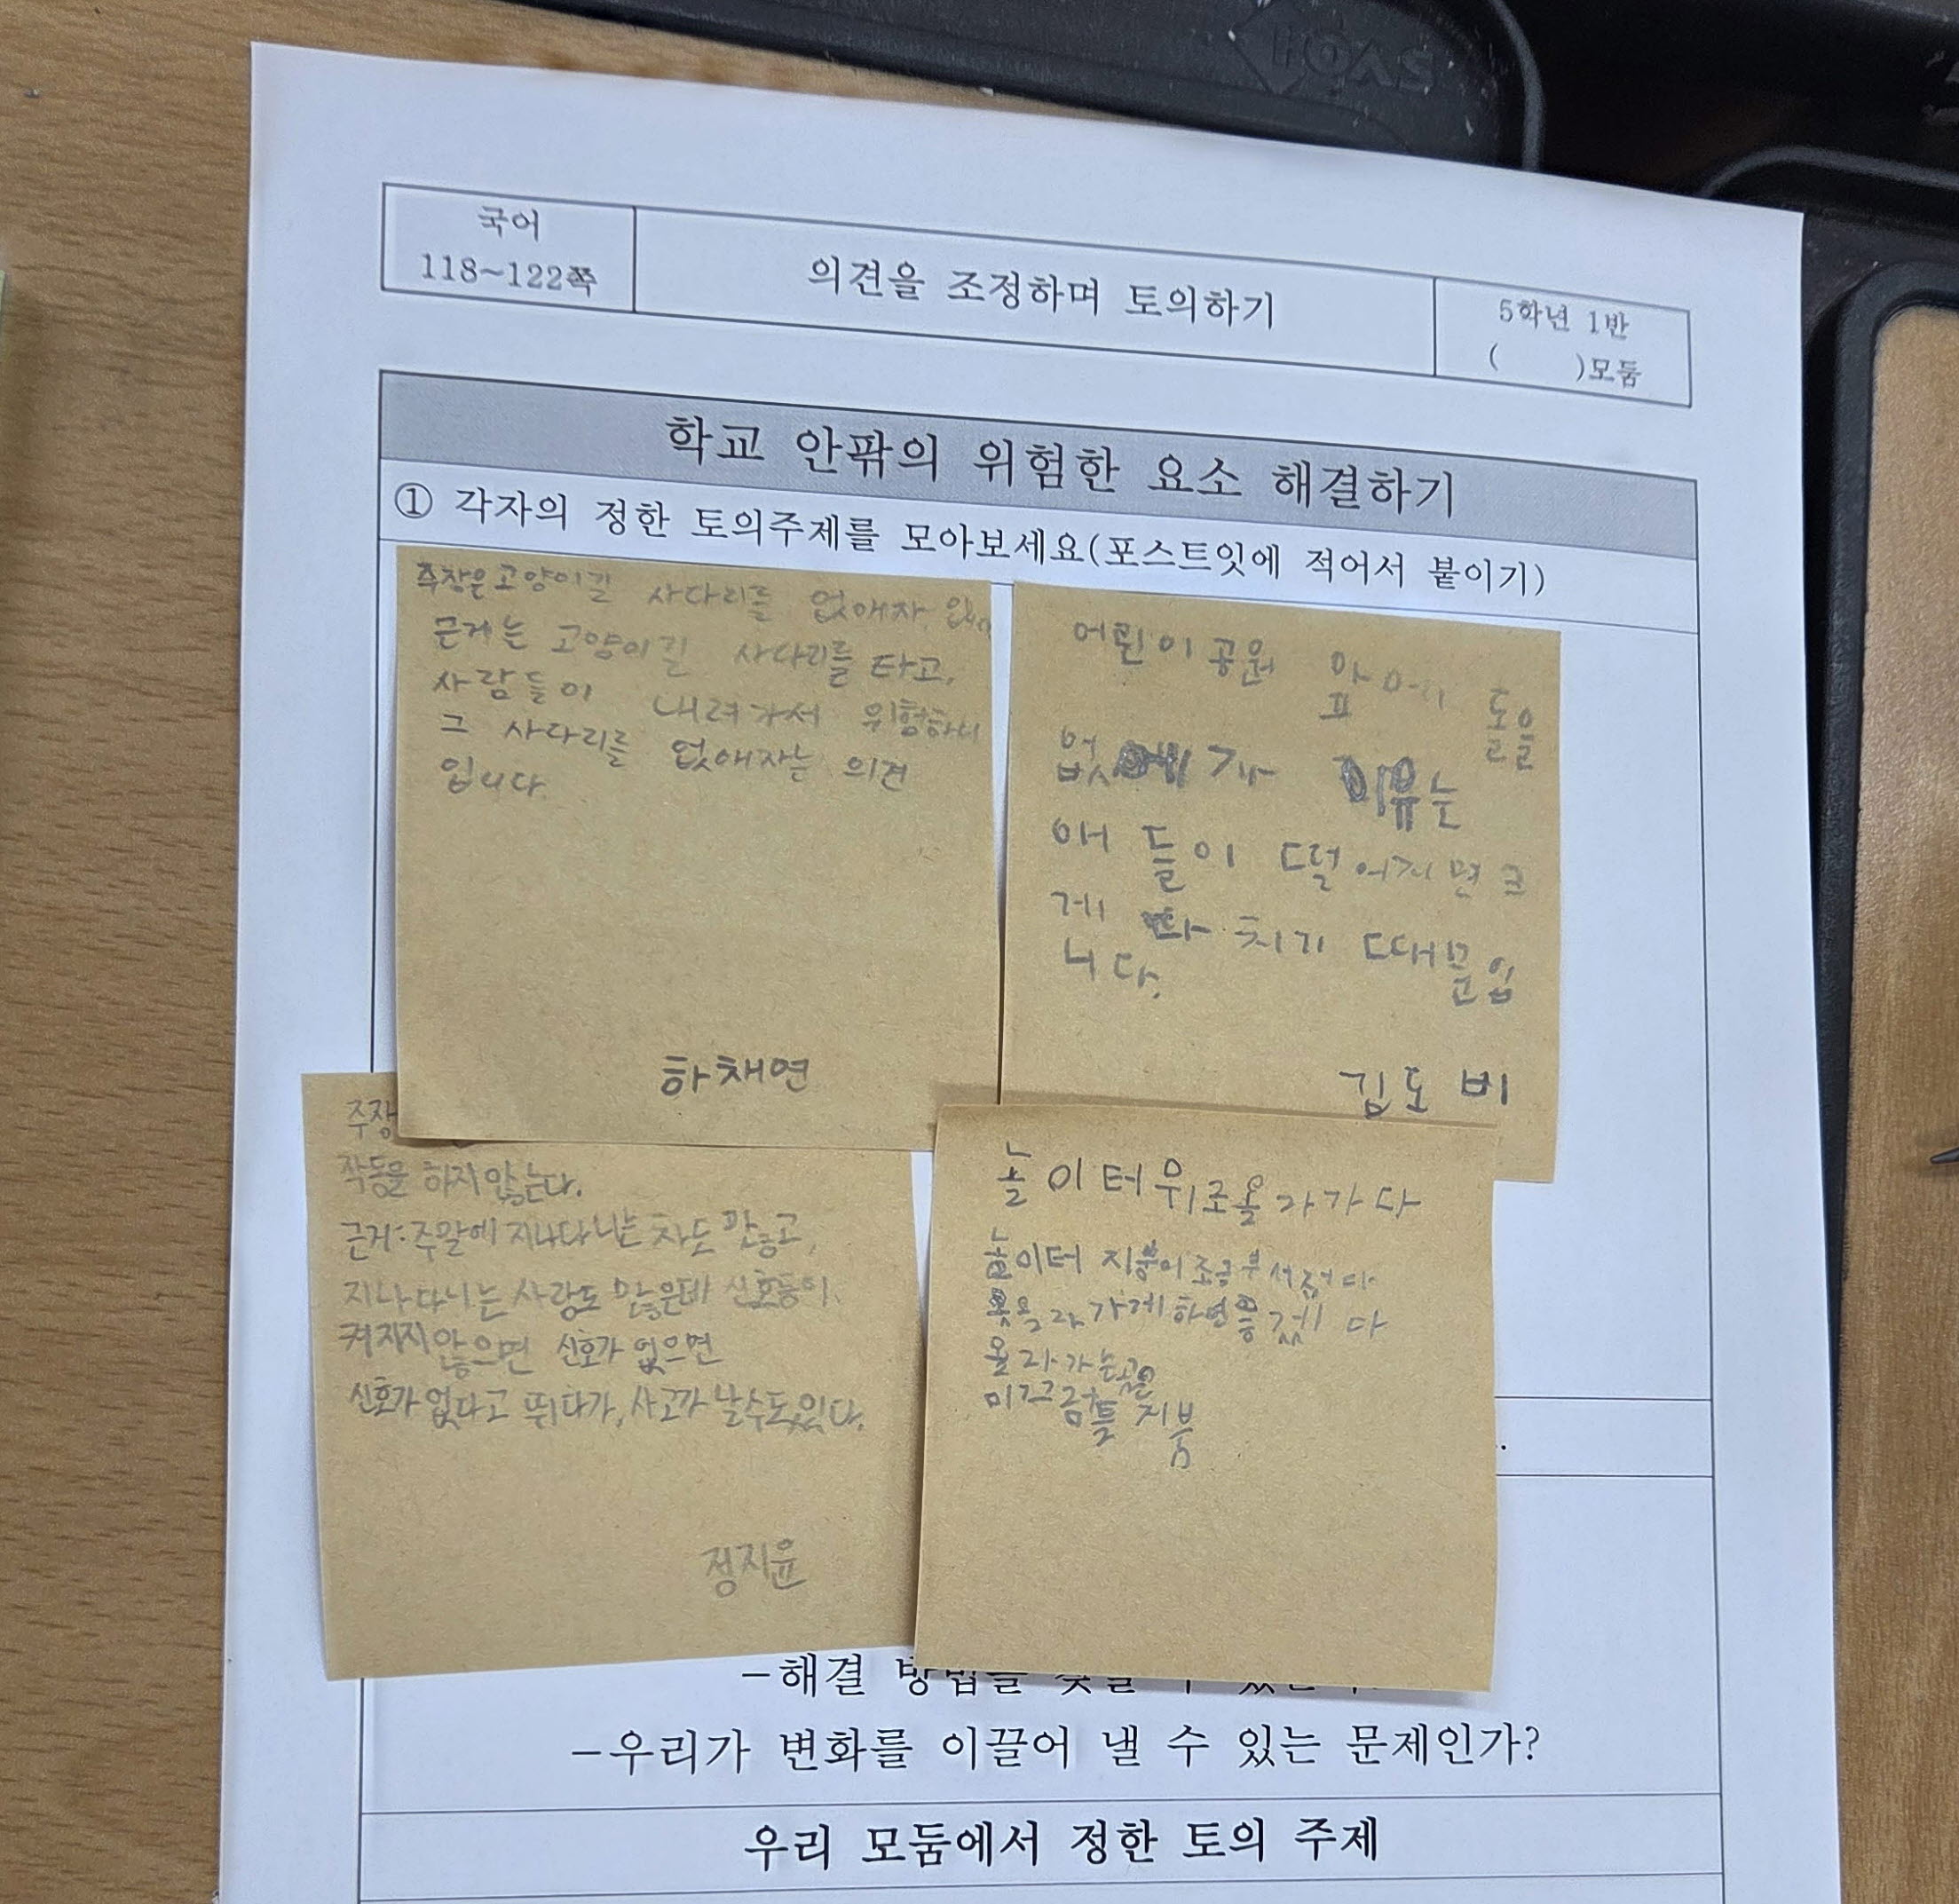 국어
118~122쪽
의견을 조정하며 토의하기
5학년 1반
( )모둠
학교 안팎의 위험한 요소 해결하기
① 각자의 정한 토의주제를 모아보세요(포스트잇에 적어서 붙이기)
주장은 고양이길 사다리를 없애자
근거는 고양이길 사다리를 타고,
사람들이 내려가서 위험하니
그 사다리를 없애자는 의견
입니다
하채연
어린이 공원 돌을
없 이유는
애들이 떨어지면 크
게 다치기 때문입
니다.
김도비
주장
작동을 하지 않는다.
근거: 주말에 지나다니는 차도 많고,
지나다니는 사람도 많은데 신호등이
켜지지 않으면 신호가 없으면
신호가 없다고 뛰다가, 사고가 날수도 있다.
정지윤
놀이터위로올라가다
놀이터 지붕이 조금 부서졌다
못올라가게하면 다
올라가는곳을
미끄럼틀 지붕
-해결
-우리가 변화를 이끌어 낼 수 있는 문제인가?
우리 모둠에서 정한 토의 주제